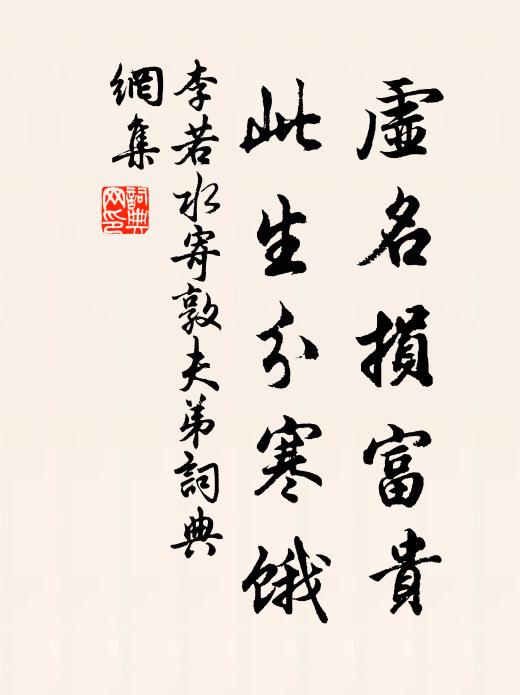 虛名損富貴
此生分寒餓
李若水寄敦夫弟詞典
網集
詞典網印